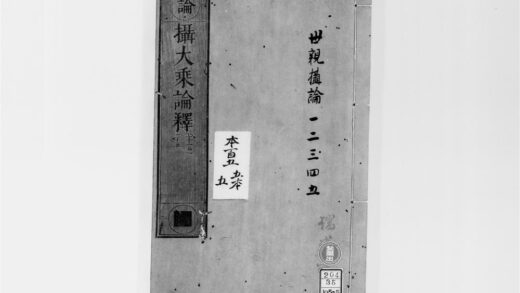 世親攝論 一二三四五
論
攝大乘論釋
本百五
五本
五
204
35